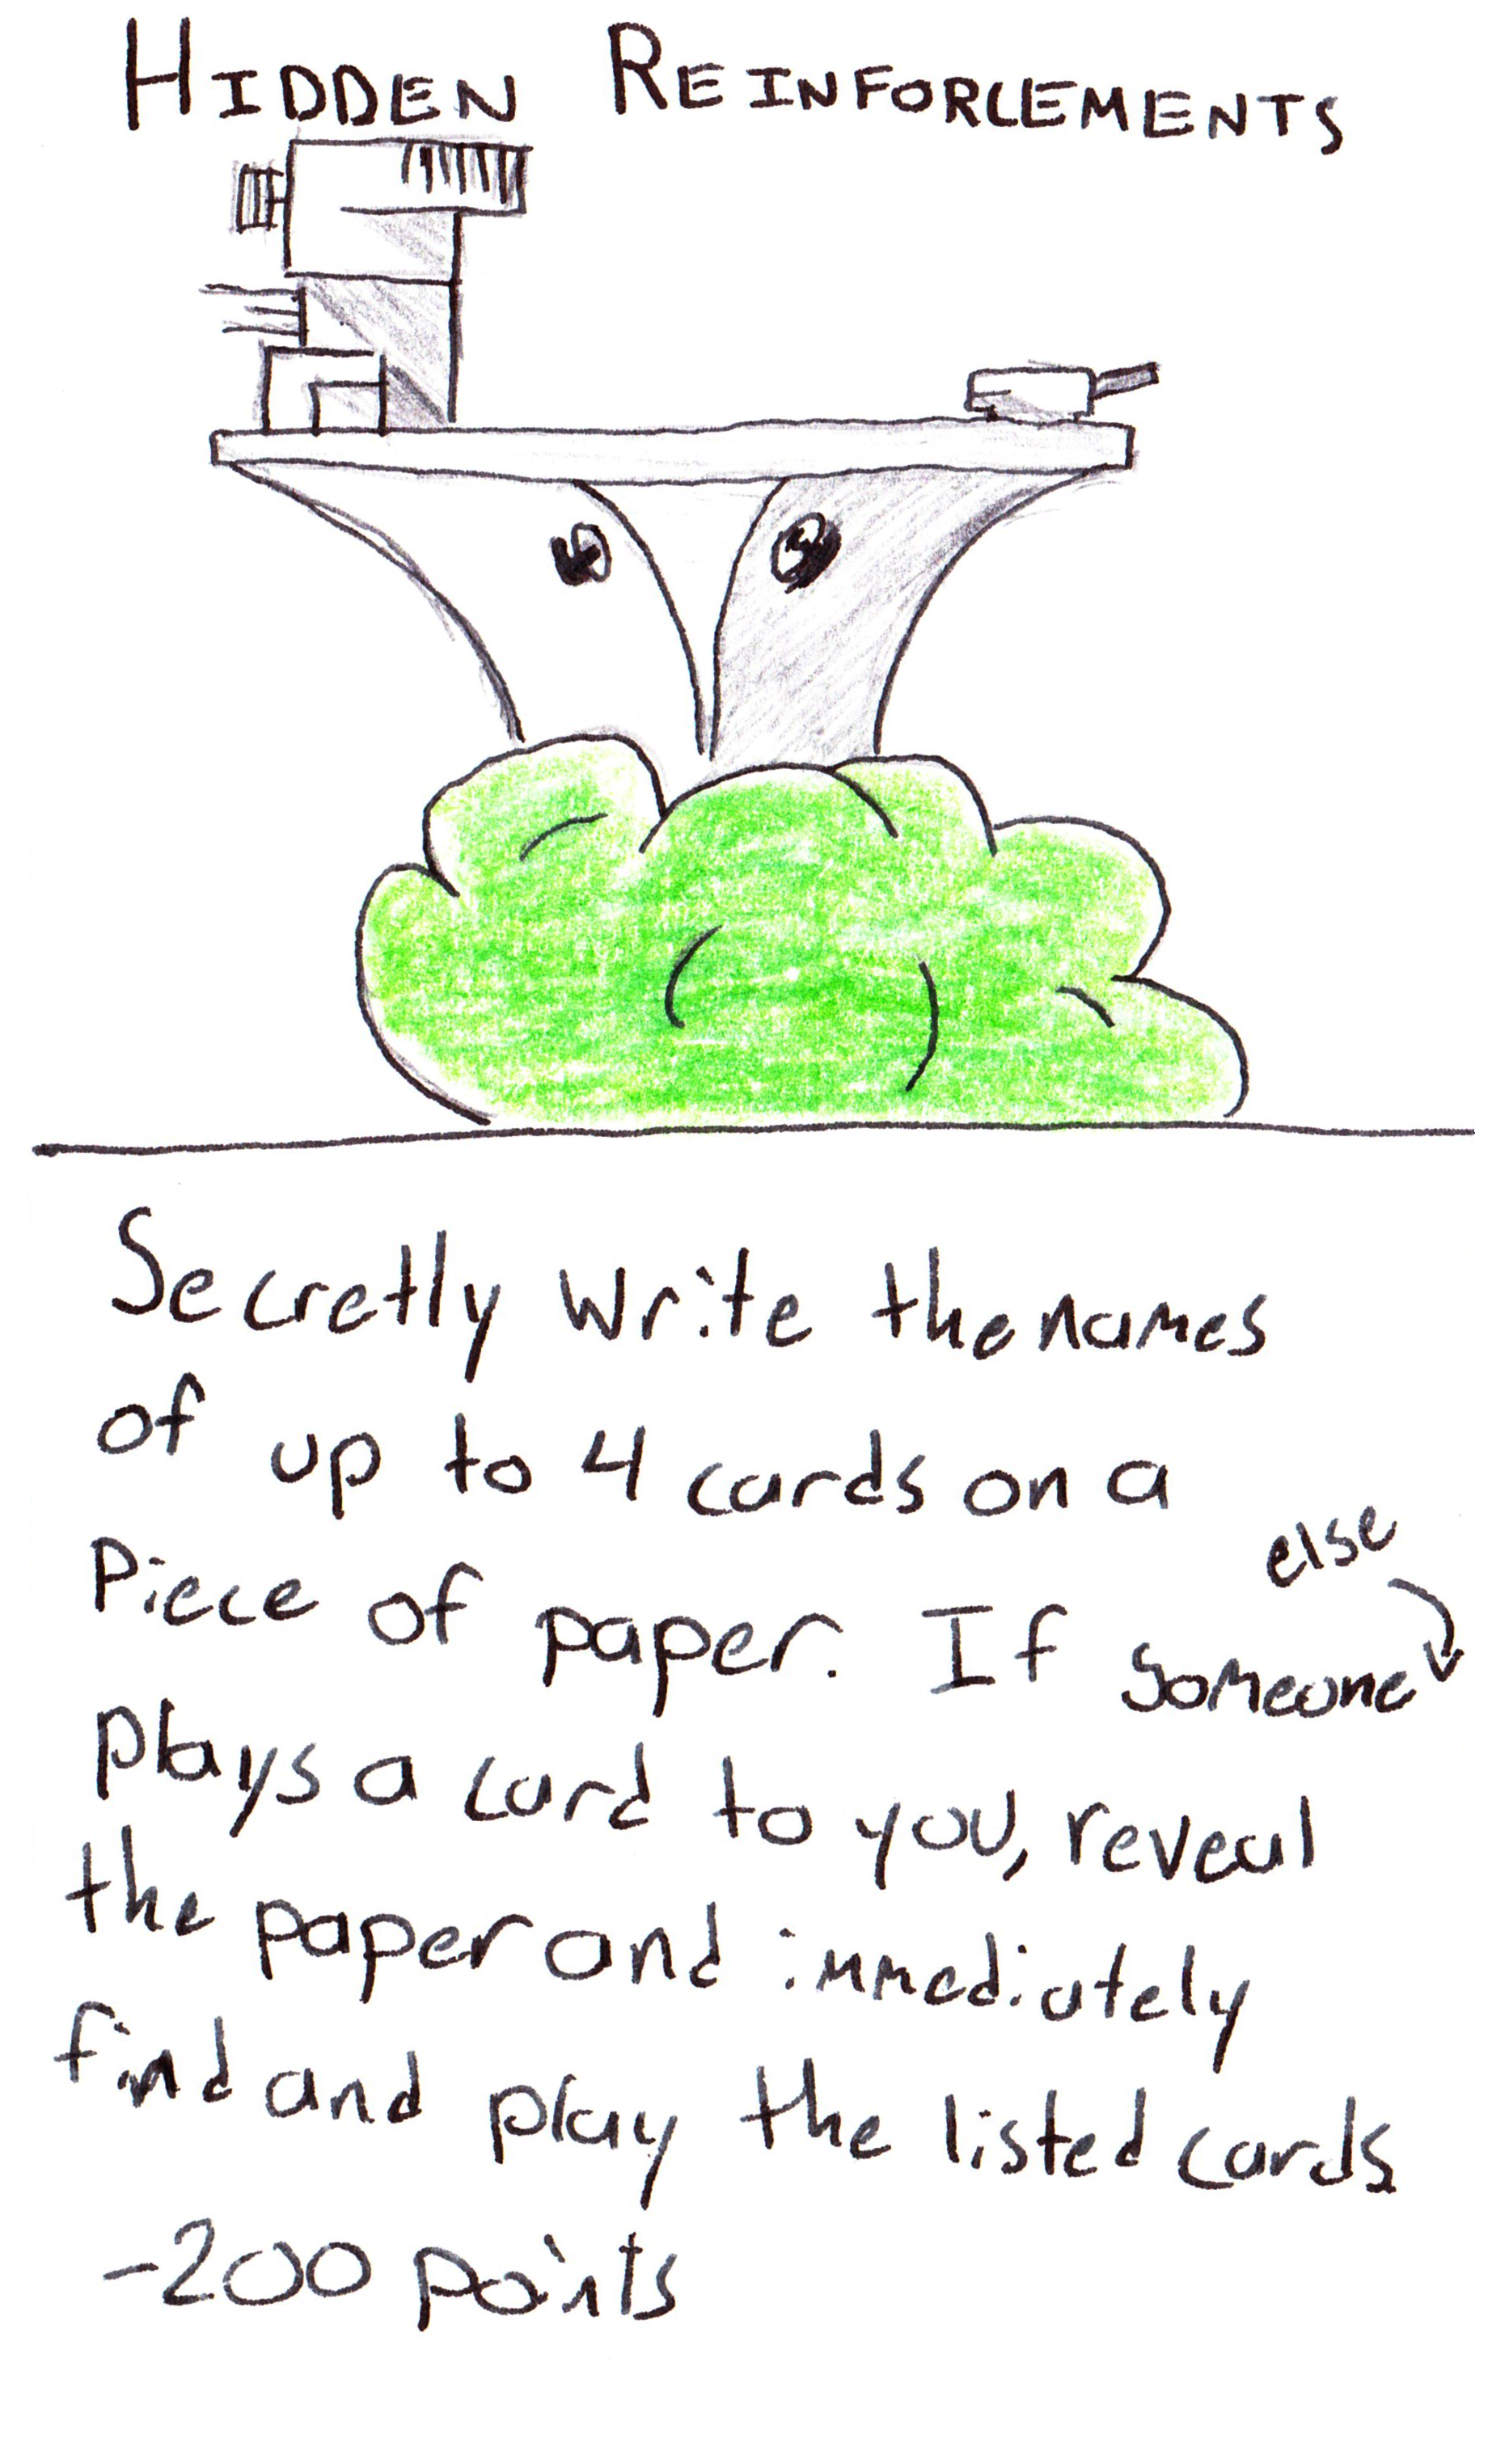 HIDDEN REINFORCEMENTS
Secretly write the names
of up to 4 cards on a
Piece of paper. If someone else
plays a card to you, reveal
the paper and immediately
find and play the listed cards
-200 points